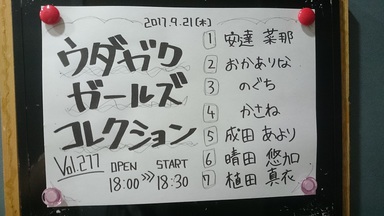 2017.9.21(木)
ウダガワ
ガールズ
コレクション
Vol.277
OPEN 18:00 >>> START 18:30
1 安達 菜那
2 おかありな
3 のぐち
4 かさね
5 成田 あより
6 晴田 悠加
7 植田 真衣